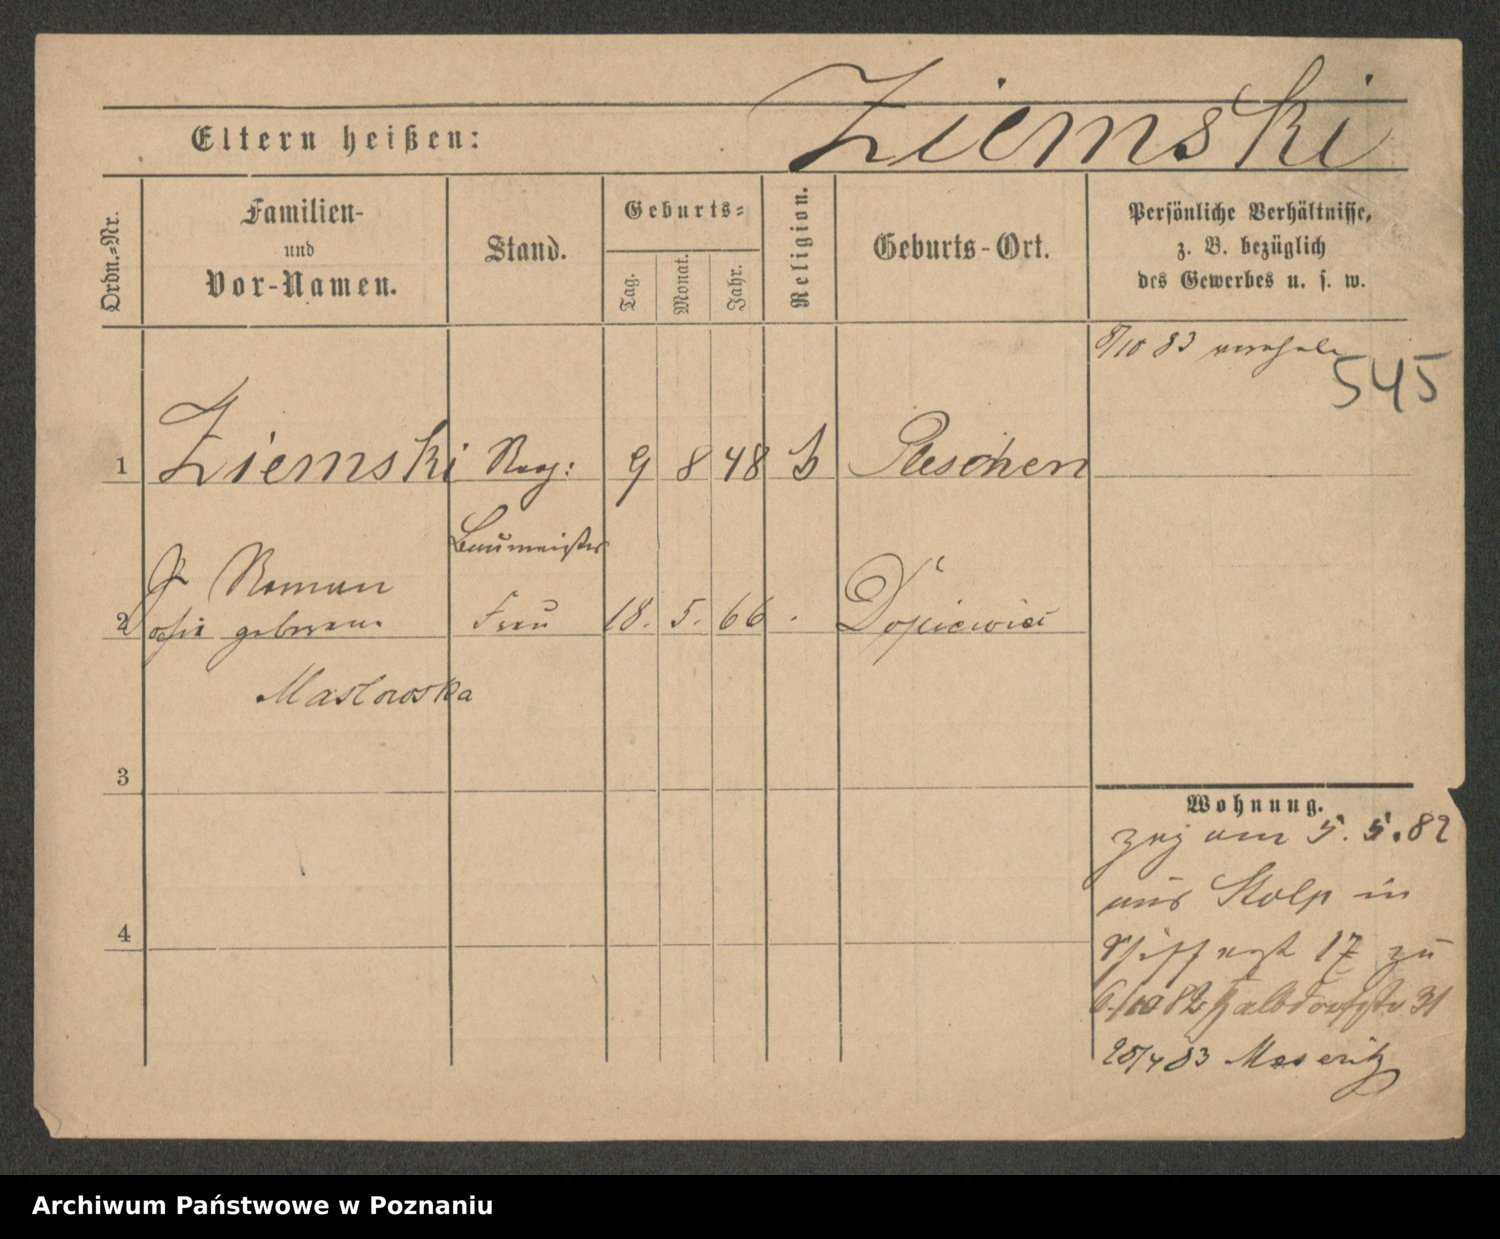 Ziemski
Eltern heißen:
Ordn.=Nr.
Familien-
und
Vor-Namen.
Stand.
Geburts=
Tag.
Monat.
Jahr.
Religion.
Geburts-Ort.
Persönliche Verhältnisse,
z. B. bezüglich
des Gewerbes u. s. w.
8/10 83
545
1 Ziemski Reg: 9 8 48 Pleschen
Baumeister
Roman
2 geborene Frau 18. 5. 66 . Dopiewiec
Maslowska
3
Wohnung.
zug am 5. 5. 82
aus Stolp in
17 zu
6/10 82 Halbdorfstr 31
25/4 83 Meseritz
4
Archiwum Państwowe w Poznaniu